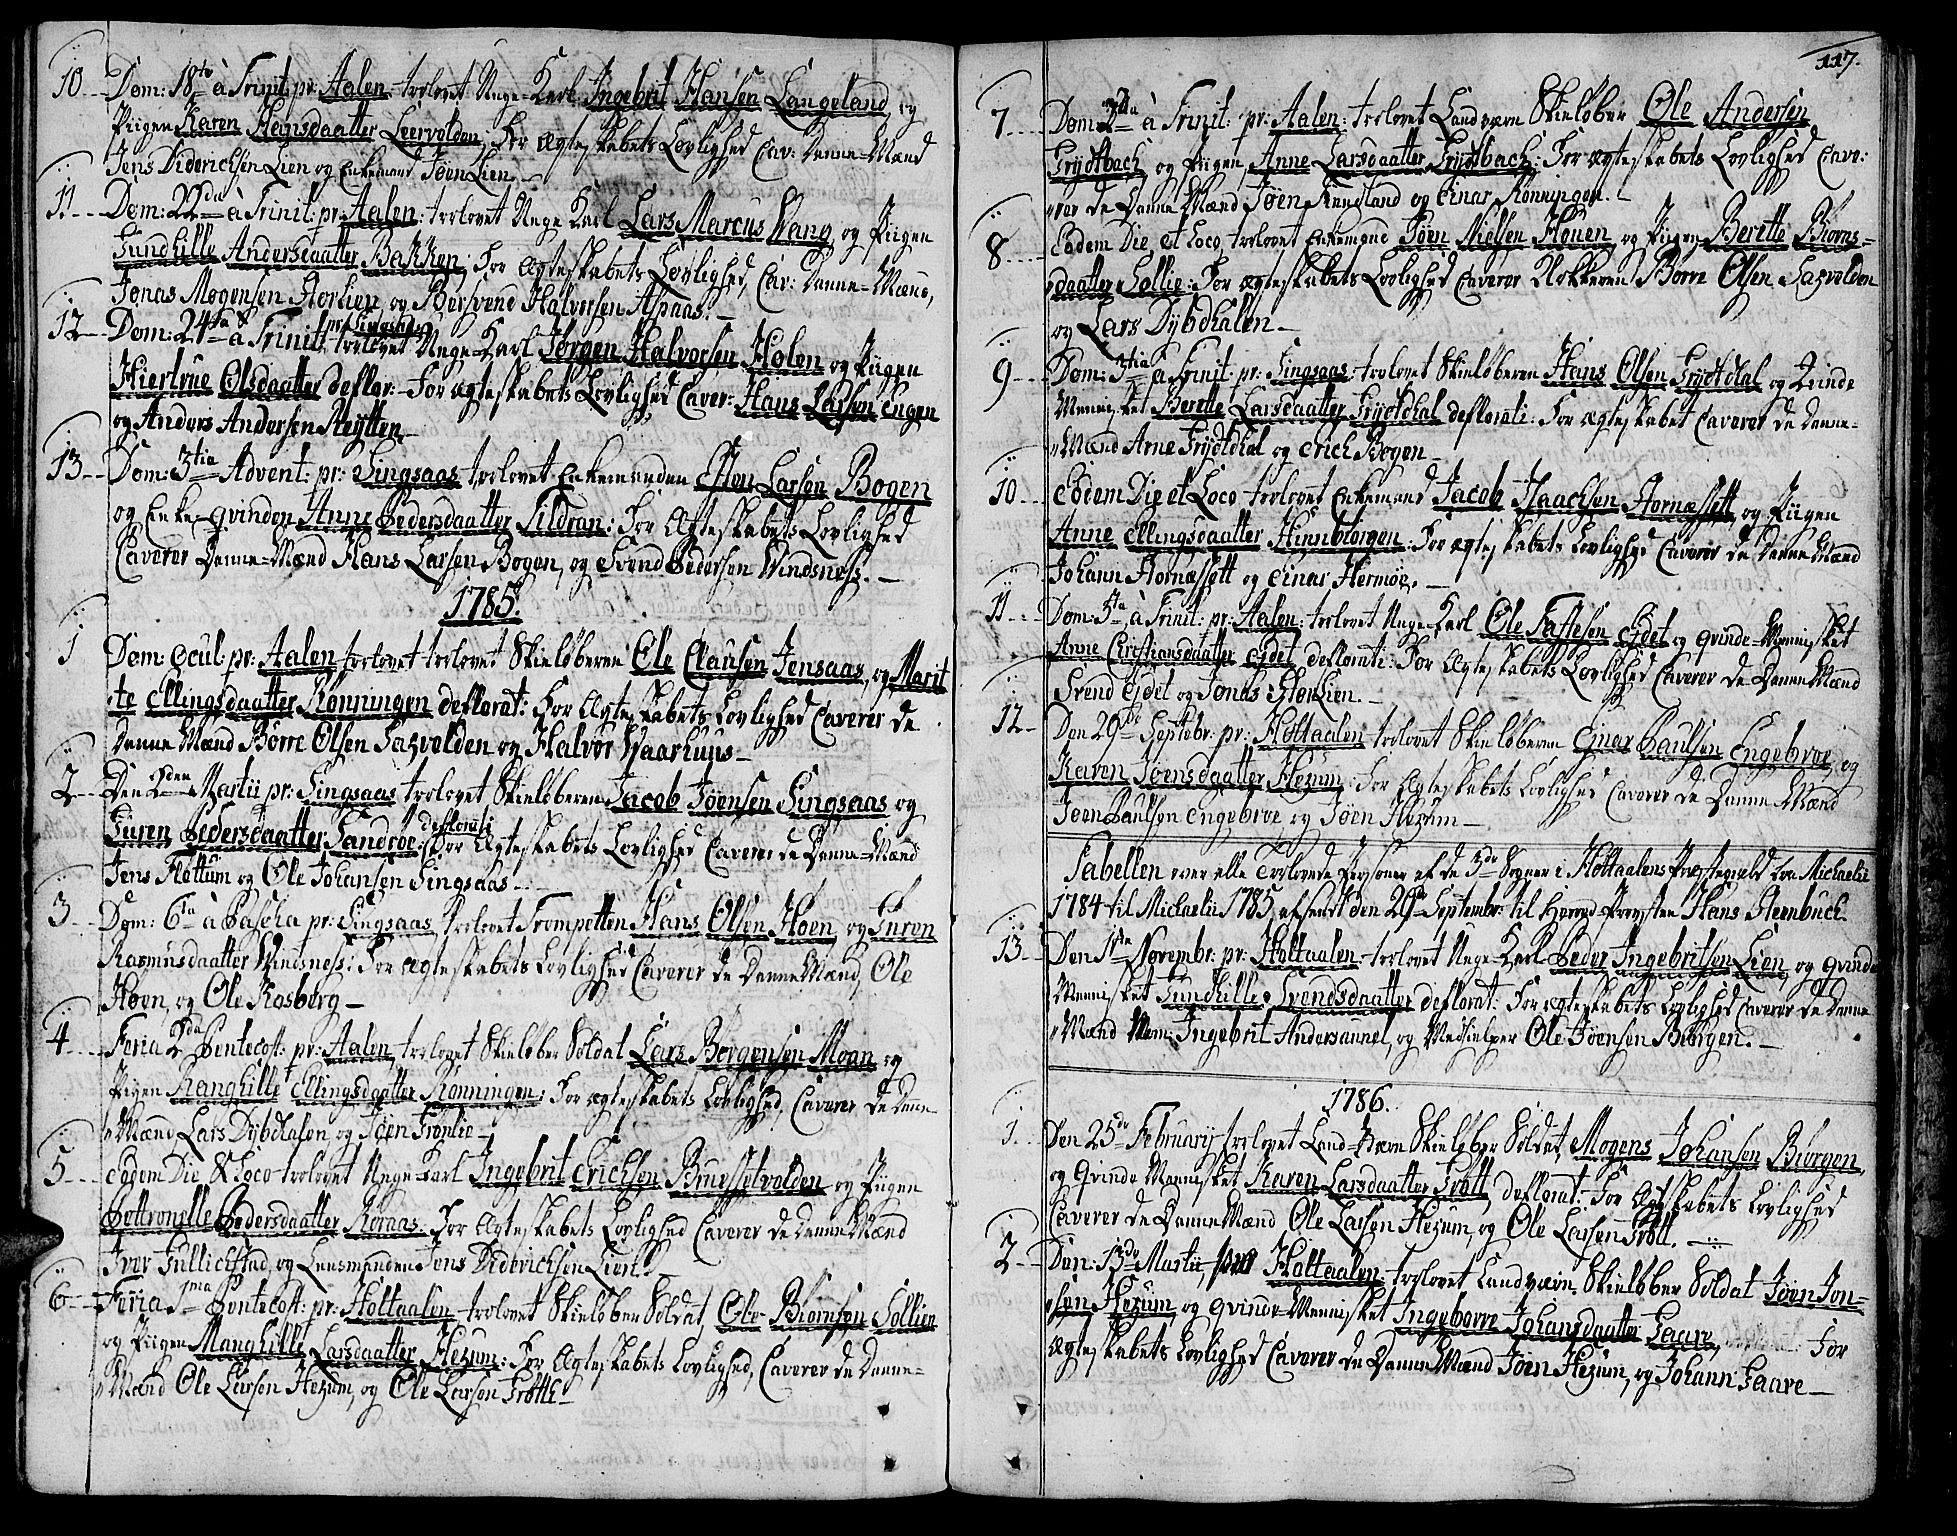 10 Dom: 18de à Trinit: pr: Aalen trolovet Unge-Karl Ingebrit Hansen Langeland og
Piigen Karen Hansdaatter Leervolden; For Ægteskabets Lovlighed Cav: Danne-Mænd
Jens Diderichsen Lien og Enkemand Jøen Lien.—
11 Dom: 22de à Trinit: pr: Aalen: trolovet Unge Karl Lars Marcus Wang og Piigen
Gundhille Andersdaatter Bakken; For Ægteskabets Lovlighed, Cav: Danne-Mænd,
Jonas Mogensen Storlien, og Bersvend Halvorsen Aspaas.—
12 Dom: 24de à Trinit: pr: Singsaas trolovet Unge-Karl Jørgen Halvorsen Holen og Piigen
Hiertrue Olsdaatter deflor: For Ægteskabets Lovlighed Caver: Hans Larsen Engen
og Anders Andersen Reytten.—
13 Dom: 3tia Advent: pr: Singsaas trolovet Enkemanden Esten Larsen Bogen
og Enke-Qvinden Anne Pedersdaatter Lildran: For Ægteskabets Lovlighed
Caverer Danne-Mænd Hans Larsen Bogen, og Svend Pedersen Windsness.—
1785.
1 Dom: Ocul: pr: Aalen trolovet trolovet Skieløberen Ole Clausen Jensaas, og Marit
te Ellingsdaatter Rønningen deflorat: For Ægteskabets Lovlighed Caverer de
Danne Mænd Børre Olsen Sazvolden og Halvor Waarhuus—
2 Den 2den Martii pr: Singsaas trolovet Skieløberen Jacob Jøensen Singsaas og
Guren Pedersdaatter Sandroe deflorati: For Ægteskabets Lovlighed Caverer de Danne-Mænd
Jens Flottum og Ole Johansen Singsaas—
3 Dom: 6ta à Pascha pr: Singsaas, trolovet Trompetten Hans Olsen Hoen og Guren
Rasmusdaatter Windsness: For Ægteskabets Lovlighed Caverer de Danne Mænd, Ole
Hoen, og Ole Kosberg—
4 Feria 2da Pentecost: pr: Aalen, trolovet Skieløber Soldat Lars Borgersen Moan og
Pigen Ranghille Ellingsdaatter Rønningen: For Ægteskabets Lovlighed, Caverer de Danne
Mænd Lars Dybdhalen, og Jøen Grønlie—
5 Eodem Die & Loco trolovet Unge-Karl Ingebrit Erichsen Bruesselvolden og Piigen
Pettronelle Pedersdaatter Røraas: For Ægteskabets Lovlighed Caverer de Danne Mænd
Iver Gullichstad, og Lensmanden Jens Diderichsen Lien.
6 Feria 3tia Pentecost: pr: Holtaalen, trolovet Skieløber Soldat, Ole Biørnsen Sollien
og Piigen Manghille Larsdaatter Hezum: For Ægteskabets Lovlighed, Caverer de Danne-
Mænd Ole Larsen Hezum, og Ole Larsen Grøtte—
117.
7 Dom: à Trinit: pr: Aalen: trolovet Landværn Skieløber Ole Andersen
Grydtbach og Piigen Anne Larsdaatter Grydtbach: For Ægteskabets Lovlighed Cave:
rer de Danne Mænd Jøen Rengland og Einar Rønningen.—
8 Eodem Die et Loco trolovet Enkemand Jøen Nielsen Houen og Piigen Berette Biørns-
daatter Sollie: For Ægteskabets Lovlighed Caverer Klokkeren Børre Olsen Sazvolden
og Lars Dybdhalen—
9 Dom: 3tia à Trinit: pr: Singsaas trolovet Skieløberen Hans Olsen Grydtdhal og Qvinde
Mennisket Berette Larsdaatter Grydtdhal deflorati: For Ægteskabet Caverer de Danne-
Mænd Arne Grydtdhal og Erich Bogen—
10 Eodem Die et Loco trolovet Enkemand Jacob Haachsen Hornæssett og Piigen
Anne Ellingsdaatter Hinnbiørgen: For Ægteskabets Lovlighed Caverer de Danne Mænd
Johann Hornæssett og Einar Hermoe.—
11 Dom: 5ta à Trinit: pr: Aalen: trolovet Unge-Karl Ole Eidet og Qvinde-Mennisket
Anne Christiansdaatter Eidet, deflorati: For Ægteskabets Lovlighed Caverer de Danne Mænd
Svend Eidet og Jonas Storlien.—
12 Den 29de Septebr: pr: Holtaalen trolovet Skieløberen Ejnar Paulsen Engebroe, og
Karen Jøensdaatter Hezum: For Ægteskabets Lovlighed Caverer de Danne Mænd
Jøen Paulsen Engebroe, og Jøen Hezum—
Tabellen over alle Trolovede Personer af de 3de Sogner i Holtaalens Præstegield fra Michaelii
1784 til Michaelii 1785, afsendt den 29de Septembr: til Herr Provsten Hans Steenbuch.
13 Den Novembr: pr: Holtaalen trolovet Unge-Karl Peder Ingebritsen Lien, og Qvinde
Mennisket Gundhille Svendsdaatter deflorat: For Ægteskabets Lovlighed Caverer de Danne
Mænd Ingebrit Andersannel, og Medhielper Ole Jøensen Biørgen.—
1786.
1 Den 25de Februarii trolovet Land-Værn Skieløber Soldat, Mogens Johansen Biørgen,
og Qvinde Mennisket Karen Larsdaatter Grøtt, deflorat: For Ægteskabets Lovlighed
Caverer de Danne Mænd Ole Larsen Hezum, og Ole Larsen Grøtt.—
2 Den 13de Martii, Holtaalen: trolovet Landværn, Skieløber Soldat Jøen Jon-
sen Hezum, og Qvinde-Mennisket Ingeborre Johansdaatter Gaare, For
Ægteskabets Lovlighed Caverer de Danne Mænd Jøen Hezum, og Johann Gaare—